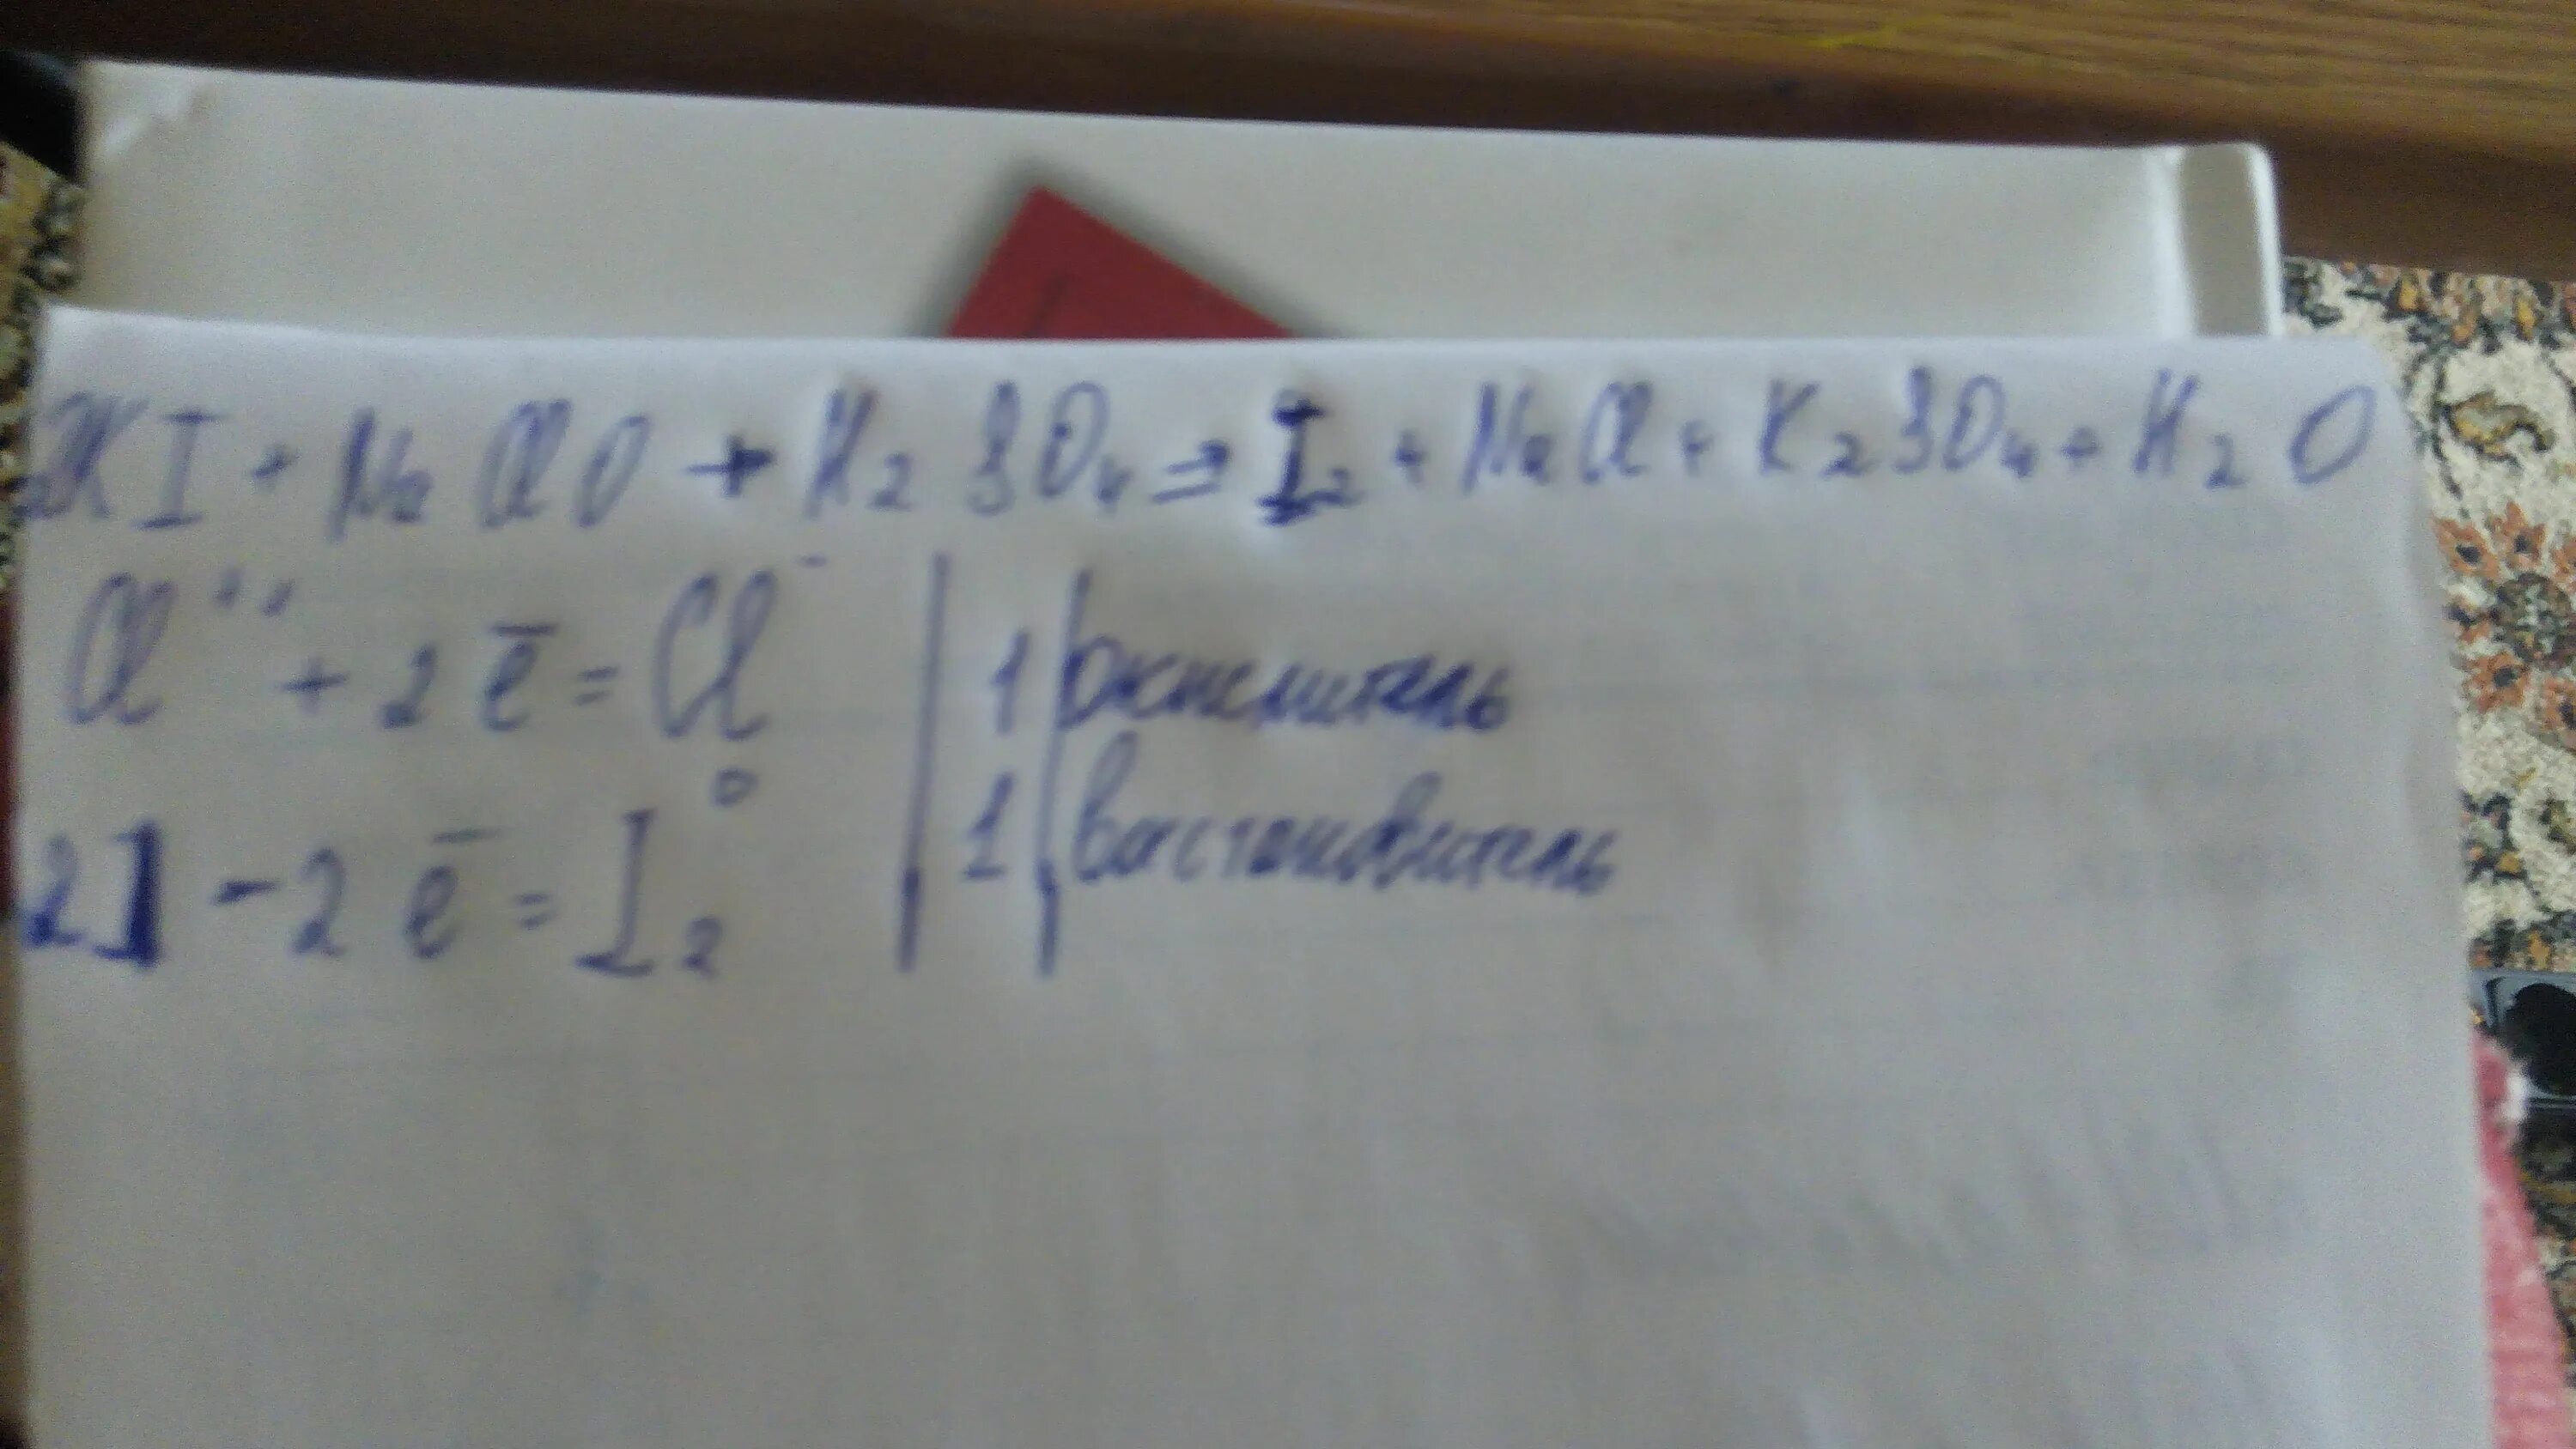 2KI + NaClO + H₂SO₄ ⇒ I₂ + NaCl + K₂SO₄ + H₂O
Cl⁺¹ + 2e̅ = Cl⁻ | 1 | окислитель
2I - 2e̅ = I₂⁰ | 1 | восстановитель